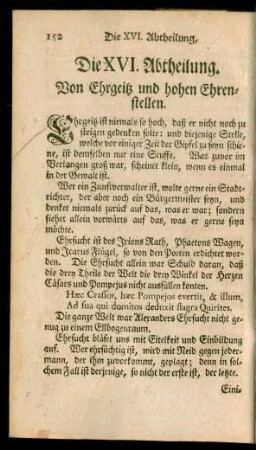 152 Die XVI. Abtheilung.
Die XVI. Abtheilung.
Von Ehrgeitz und hohen Ehren-
stellen.
Ehrgeitz ist niemals so hoch, daß er nicht noch zu
steigen gedenken solte: und diejenige Stelle,
welche vor einiger Zeit der Gipfel zu seyn schie-
ne, ist demselben nur eine Stuffe. Was zuvor im
Verlangen groß war, scheinet klein, wenn es einmal
in der Gewalt ist.
Wer ein Zunftverwalter ist, wolte gerne ein Stadt-
richter, der aber noch ein Bürgermeister seyn, und
denket niemals zurück auf das, was er war; sondern
siehet allein vorwärts auf das, was er gerne seyn
möchte.
Ehrsucht ist des Irions Rath, Phaetons Wagen,
und Icarus Flügel, so von den Poeten erdichtet wor-
den. Die Ehrsucht allein war Schuld daran, daß
die drey Theile der Welt die drey Winkel der Herzen
Cäsars und Pompejus nicht ausfüllen konten.
Hæc Crassos, hæc Pompejos evertit, & illum,
Ad sua qui domitos deduxit flagra Quirites.
Die ganze Welt war Alexanders Ehrsucht nicht ge-
nug zu einem Ellbogenraum.
Ehrsucht bläset uns mit Eitelkeit und Einbildung
auf. Wer ehrsüchtig ist, wird mit Neid gegen jeder-
mann, der ihm zuvorkommt, geplagt; denn in sol-
chem Fall ist derjenige, so nicht der erste ist, der letzte.
Eini-